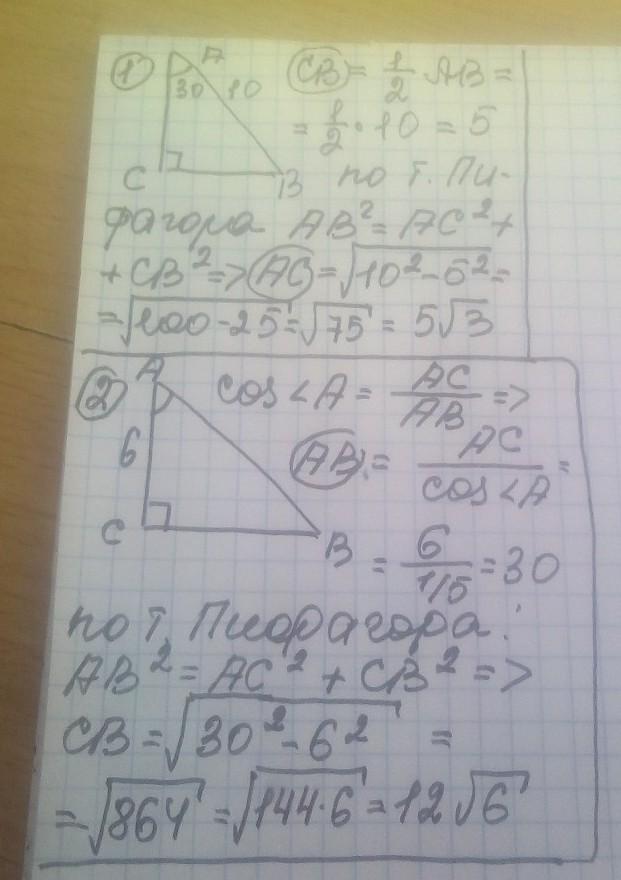 ① A CB = 1/2 · AB =
30 10 = 1/2 · 10 = 5
C B по т. Пи-
фагора AB² = AC² +
+ CB² => AC = √(10² - 5²) =
= √(100 - 25) = √75 = 5√3
② A cos ∠A = AC/AB =>
6 AB = AC/cos ∠A =
C B = 6/1/5 = 30
по т. Пифагора:
AB² = AC² + CB² =>
CB = √(30² - 6²) =
= √864 = √(144·6) = 12√6